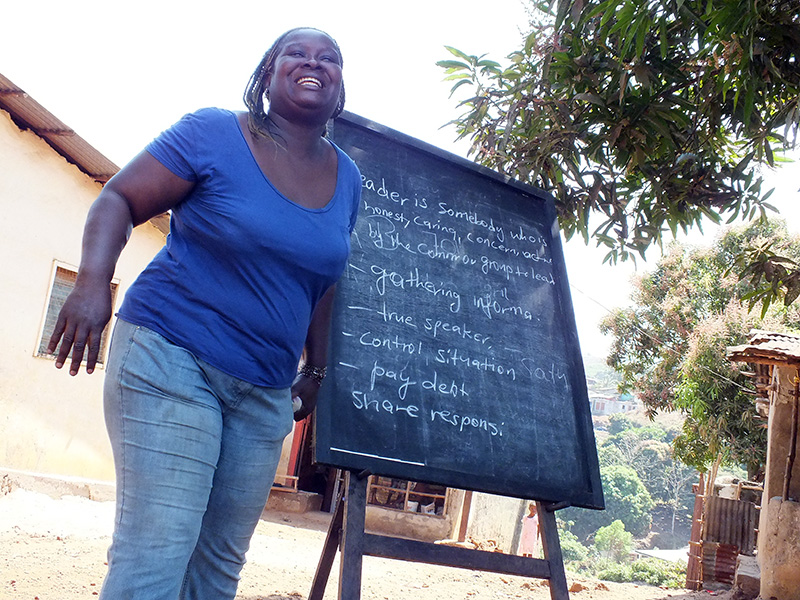 eader is Somebody who is
honest, caring, concern,
by the Common group to lead
- gathering informa:
- true speaker.
- control situation
- pay debt
share responsi